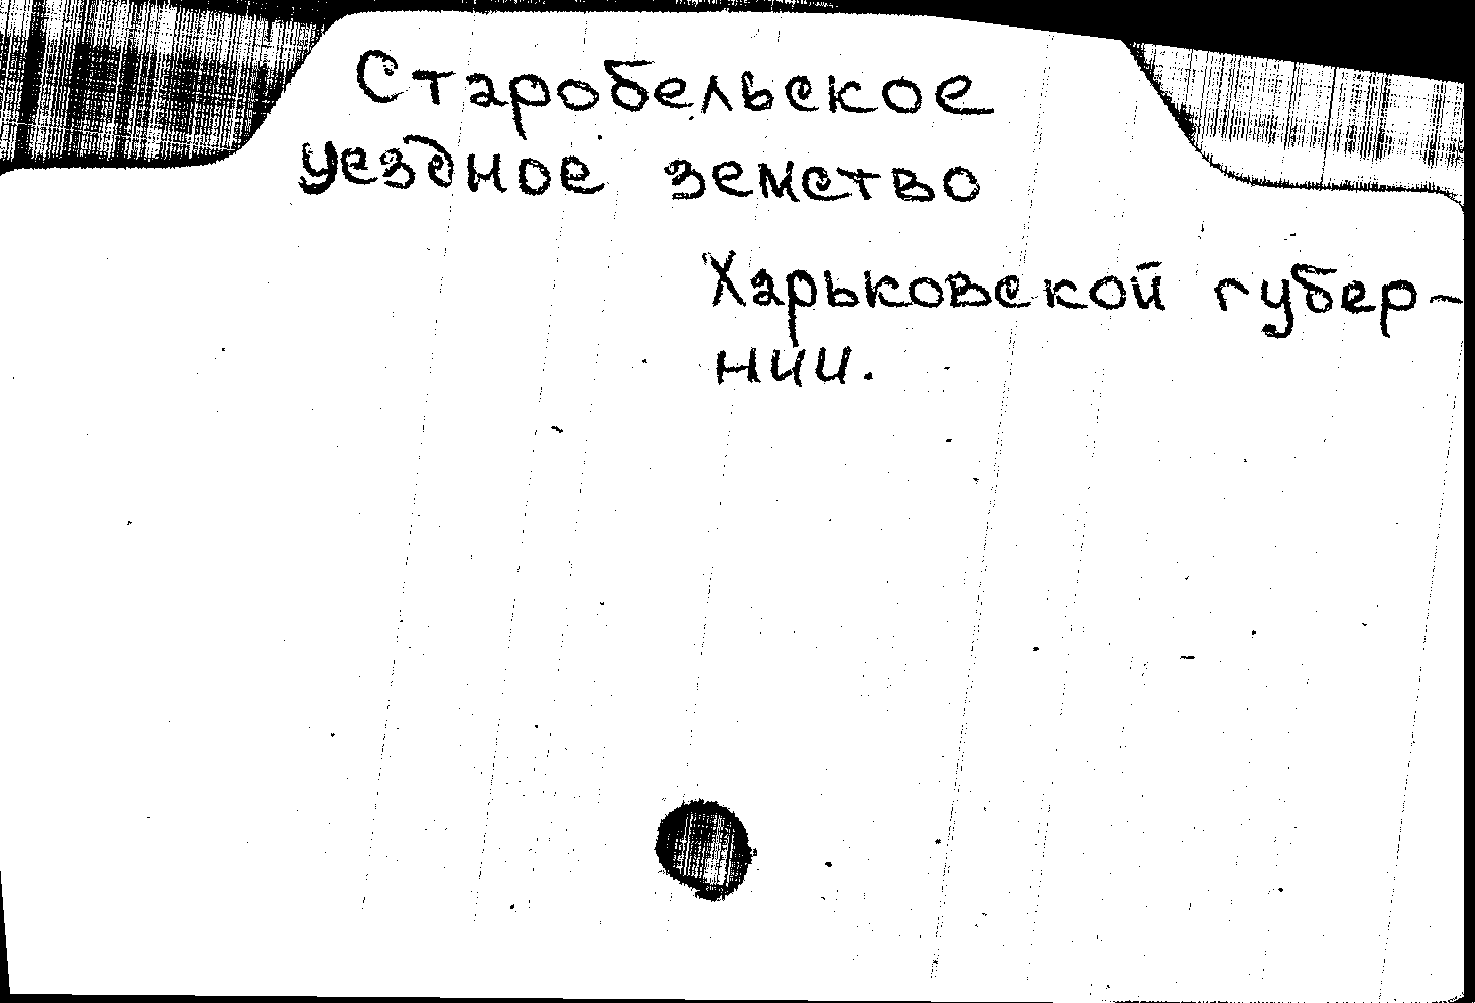 Старобельское
уездное земство
Харьковской губер-
нии.